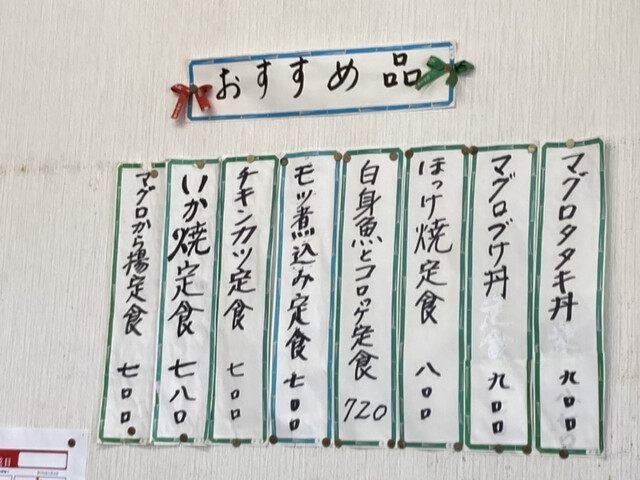 おすすめ品
マグロタタキ丼 九〇〇
マグロづけ丼 九〇〇
ほっけ焼定食 八〇〇
白身魚とコロッケ定食 720
モツ煮込み定食 七〇〇
チキンカツ定食 七〇〇
いか焼定食 七八〇
マグロから揚定食 七〇〇